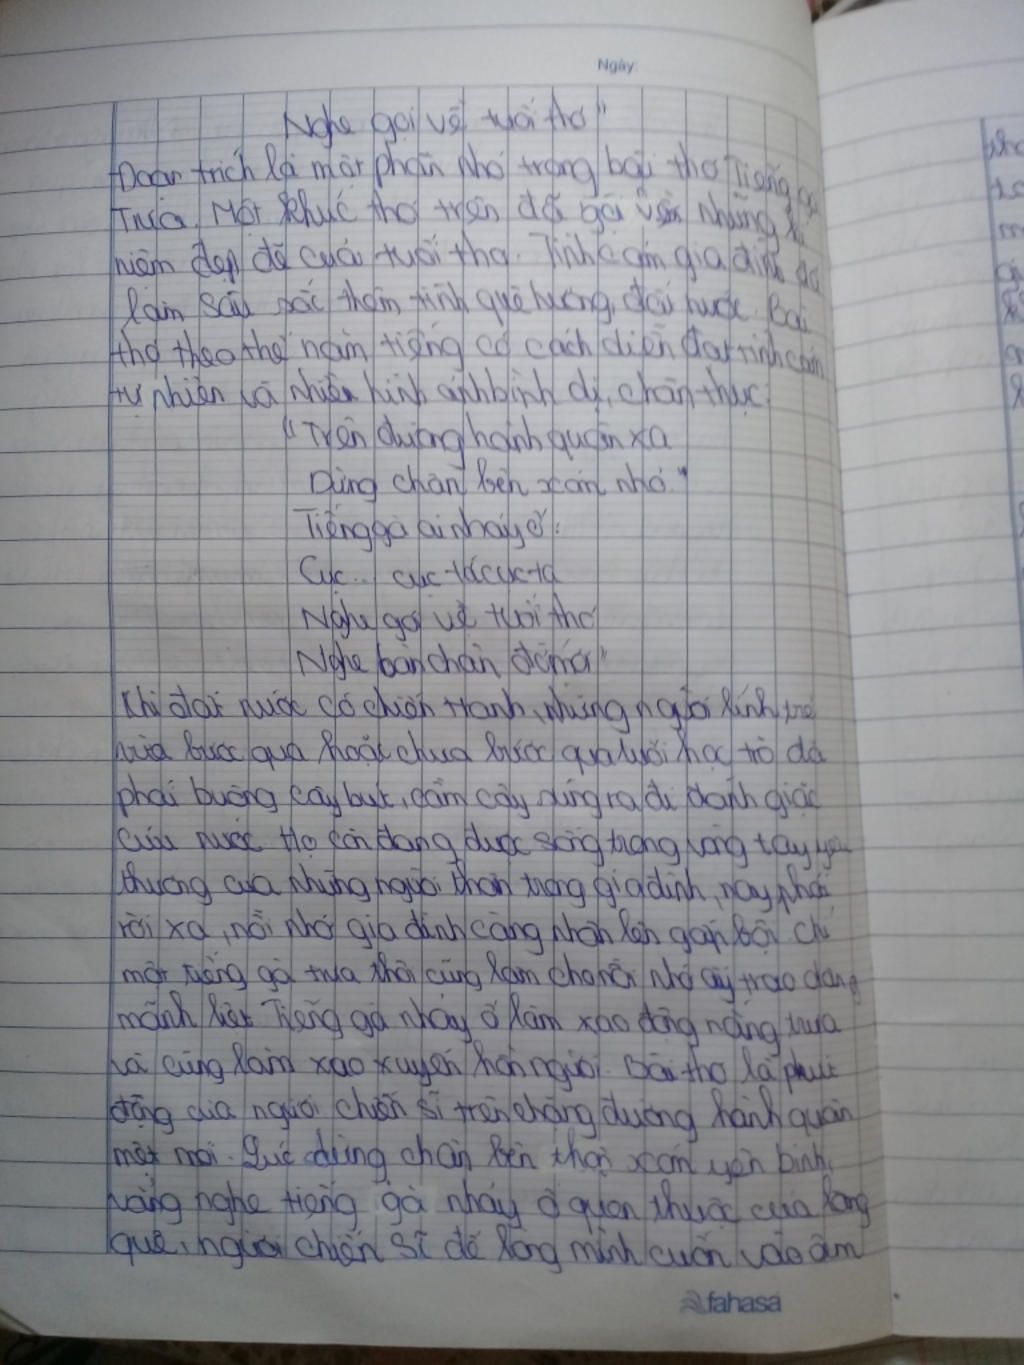 Ngày:
Nghe gọi về tuổi thơ"
Đoạn trích là một phần nhỏ trong bài thơ Tiếng gà
Trưa. Một khúc thơ trên đã gợi về những kỉ
niệm đẹp đẽ của tuổi thơ. Tình cảm gia đình đã
làm sâu sắc thêm tình quê hương, đất nước. Bài
thơ theo thể năm tiếng có cách diễn đạt tình cảm
tự nhiên và nhiều hình ảnh bình dị, chân thực.
"Trên đường hành quân xa
Dừng chân bên xóm nhỏ"
Tiếng gà ai nhảy ổ:
Cục... cục tác cục ta
Nghe gọi về tuổi thơ
Nghe bàn chân đỡ mỏi"
Khi đất nước có chiến tranh, những người lính trẻ
vừa bước qua hoặc chưa bước qua tuổi học trò đã
phải buông cây bút, cầm cây súng ra đi đánh giặc
cứu nước. Họ còn đang được sống trong vòng tay yêu
thương của những người thân trong gia đình, nay phải
rời xa, nỗi nhớ gia đình càng nhân lên gấp bội. Chỉ
một tiếng gà trưa thôi cũng làm cho nỗi nhớ ấy trào dâng
mãnh liệt. Tiếng gà nhảy ổ làm xao động nắng trưa
và cũng làm xao xuyến hồn người. Bài thơ là phút
động của người chiến sĩ trên chặng đường hành quân
mệt mỏi. Lúc dừng chân bên xóm yên bình,
vẳng nghe tiếng gà nhảy ổ quen thuộc của làng
quê, người chiến sĩ để lòng mình cuốn vào âm
fahasa